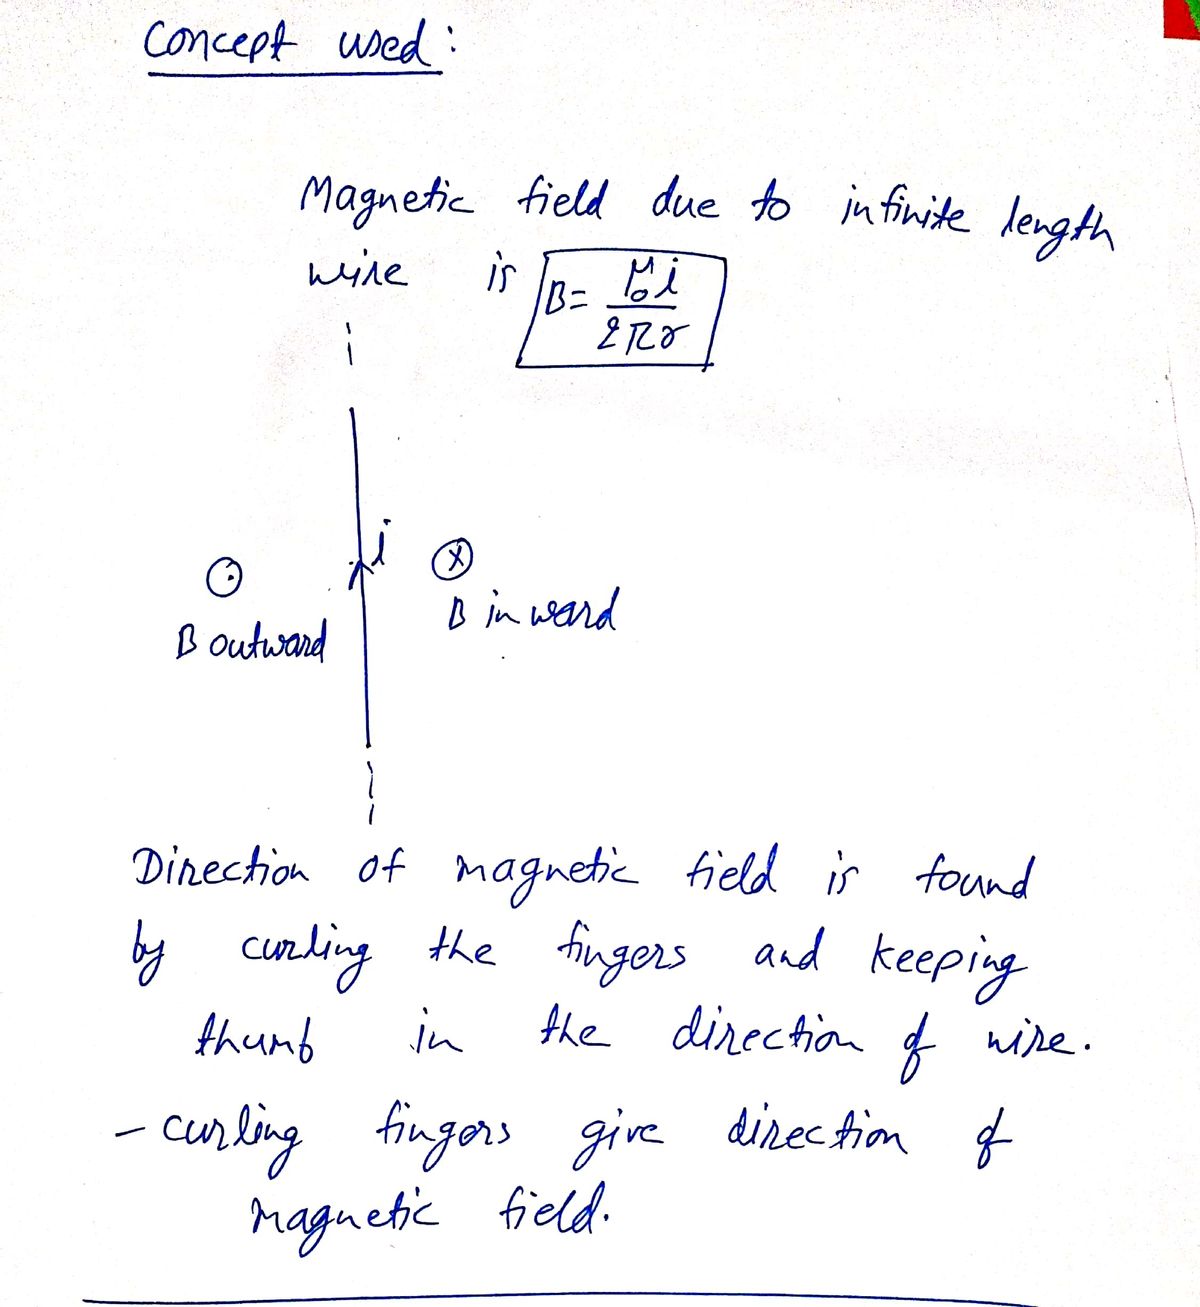 Concept used:
Magnetic field due to infinite length
wire is B = μ₀i / 2πr
i
B outward
B inward
Direction of magnetic field is found
by curling the fingers and keeping
thumb in the direction of wire.
- curling fingers give direction of
magnetic field.